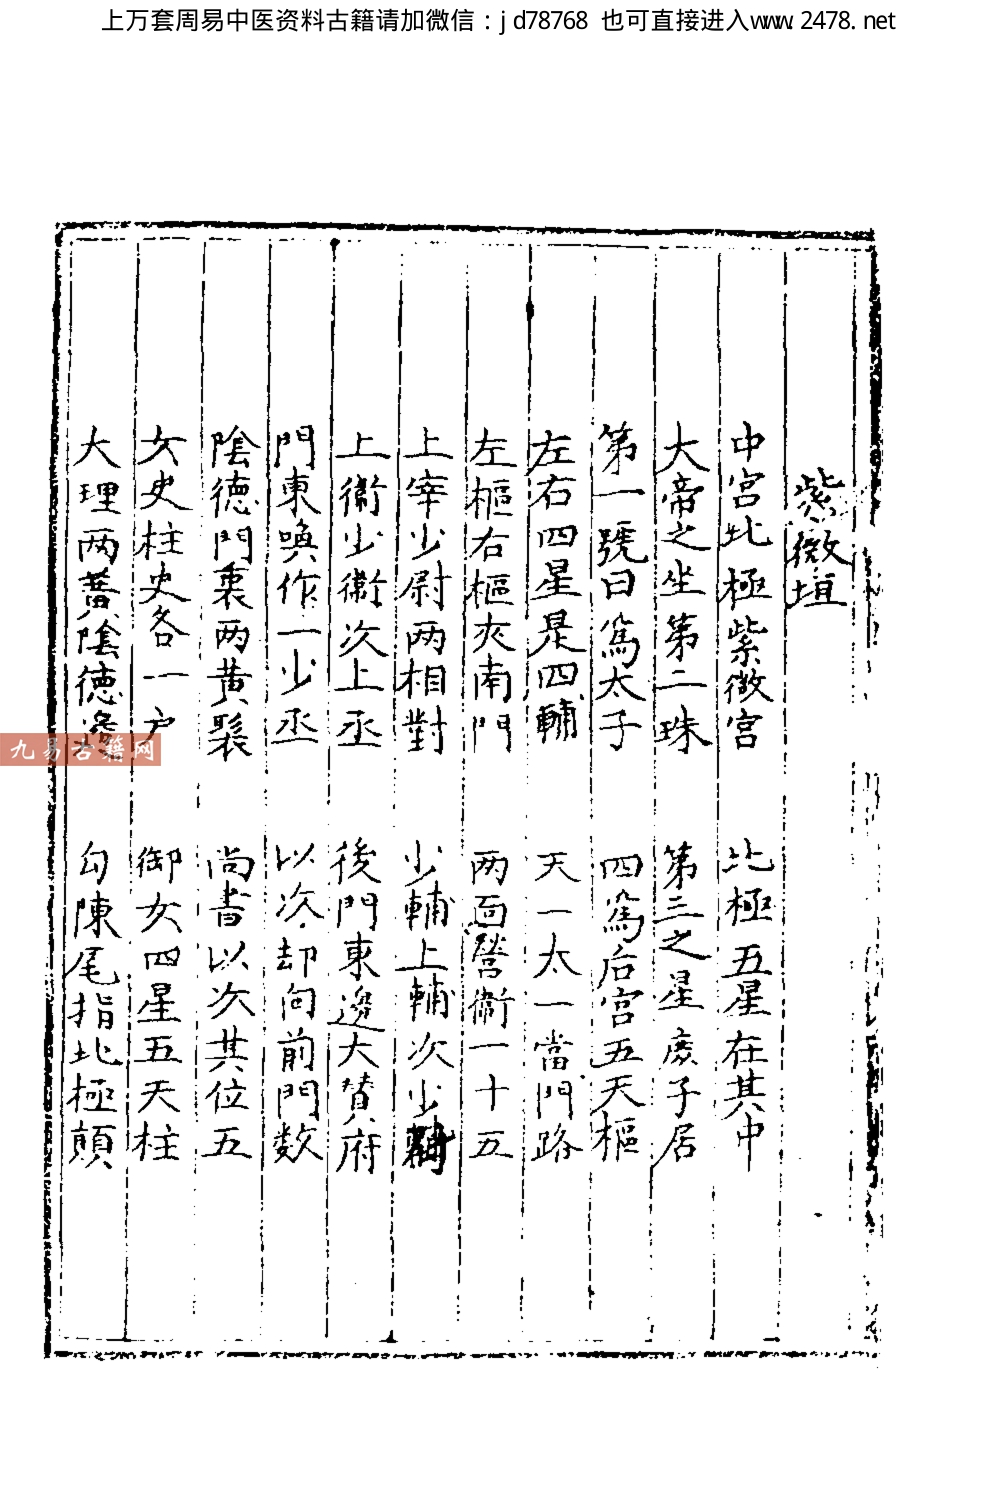 上万套周易中医资料古籍请加微信：jd78768 也可直接进入www.2478.net
紫微垣
中宮北極紫微宮 北極五星在其中
大帝之坐第二珠 第三之星庻子居
第一號曰為太子 四為后宮五天樞
左右四星是四輔 天一太一當門路
左樞右樞夾南門 两面營衛一十五
上宰少尉两相對 少輔上輔次少輔
上衛少衛次上丞 後門東邊大賛府
門東喚作一少丞 以次却向前門数
陰德門裏两黄聚 尚書以次其位五
女史柱史各一户 御女四星五天柱
大理两黄陰德邊 勾陳尾指北極顛
九易古籍网